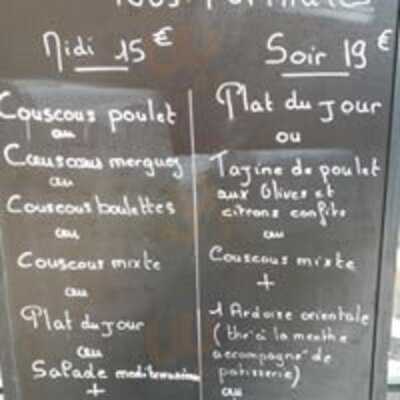 Midi 15€
Couscous poulet
ou
Couscous merguez
ou
Couscous boulettes
ou
Couscous mixte
ou
Plat du jour
ou
Salade mediterranéenne
+
Soir 19€
Plat du jour
ou
Tajine de poulet
aux Olives et
citrons confits
ou
Couscous mixte
+
1 Ardoise orientale
(thé à la menthe
accompagné de
patisserie)
ou